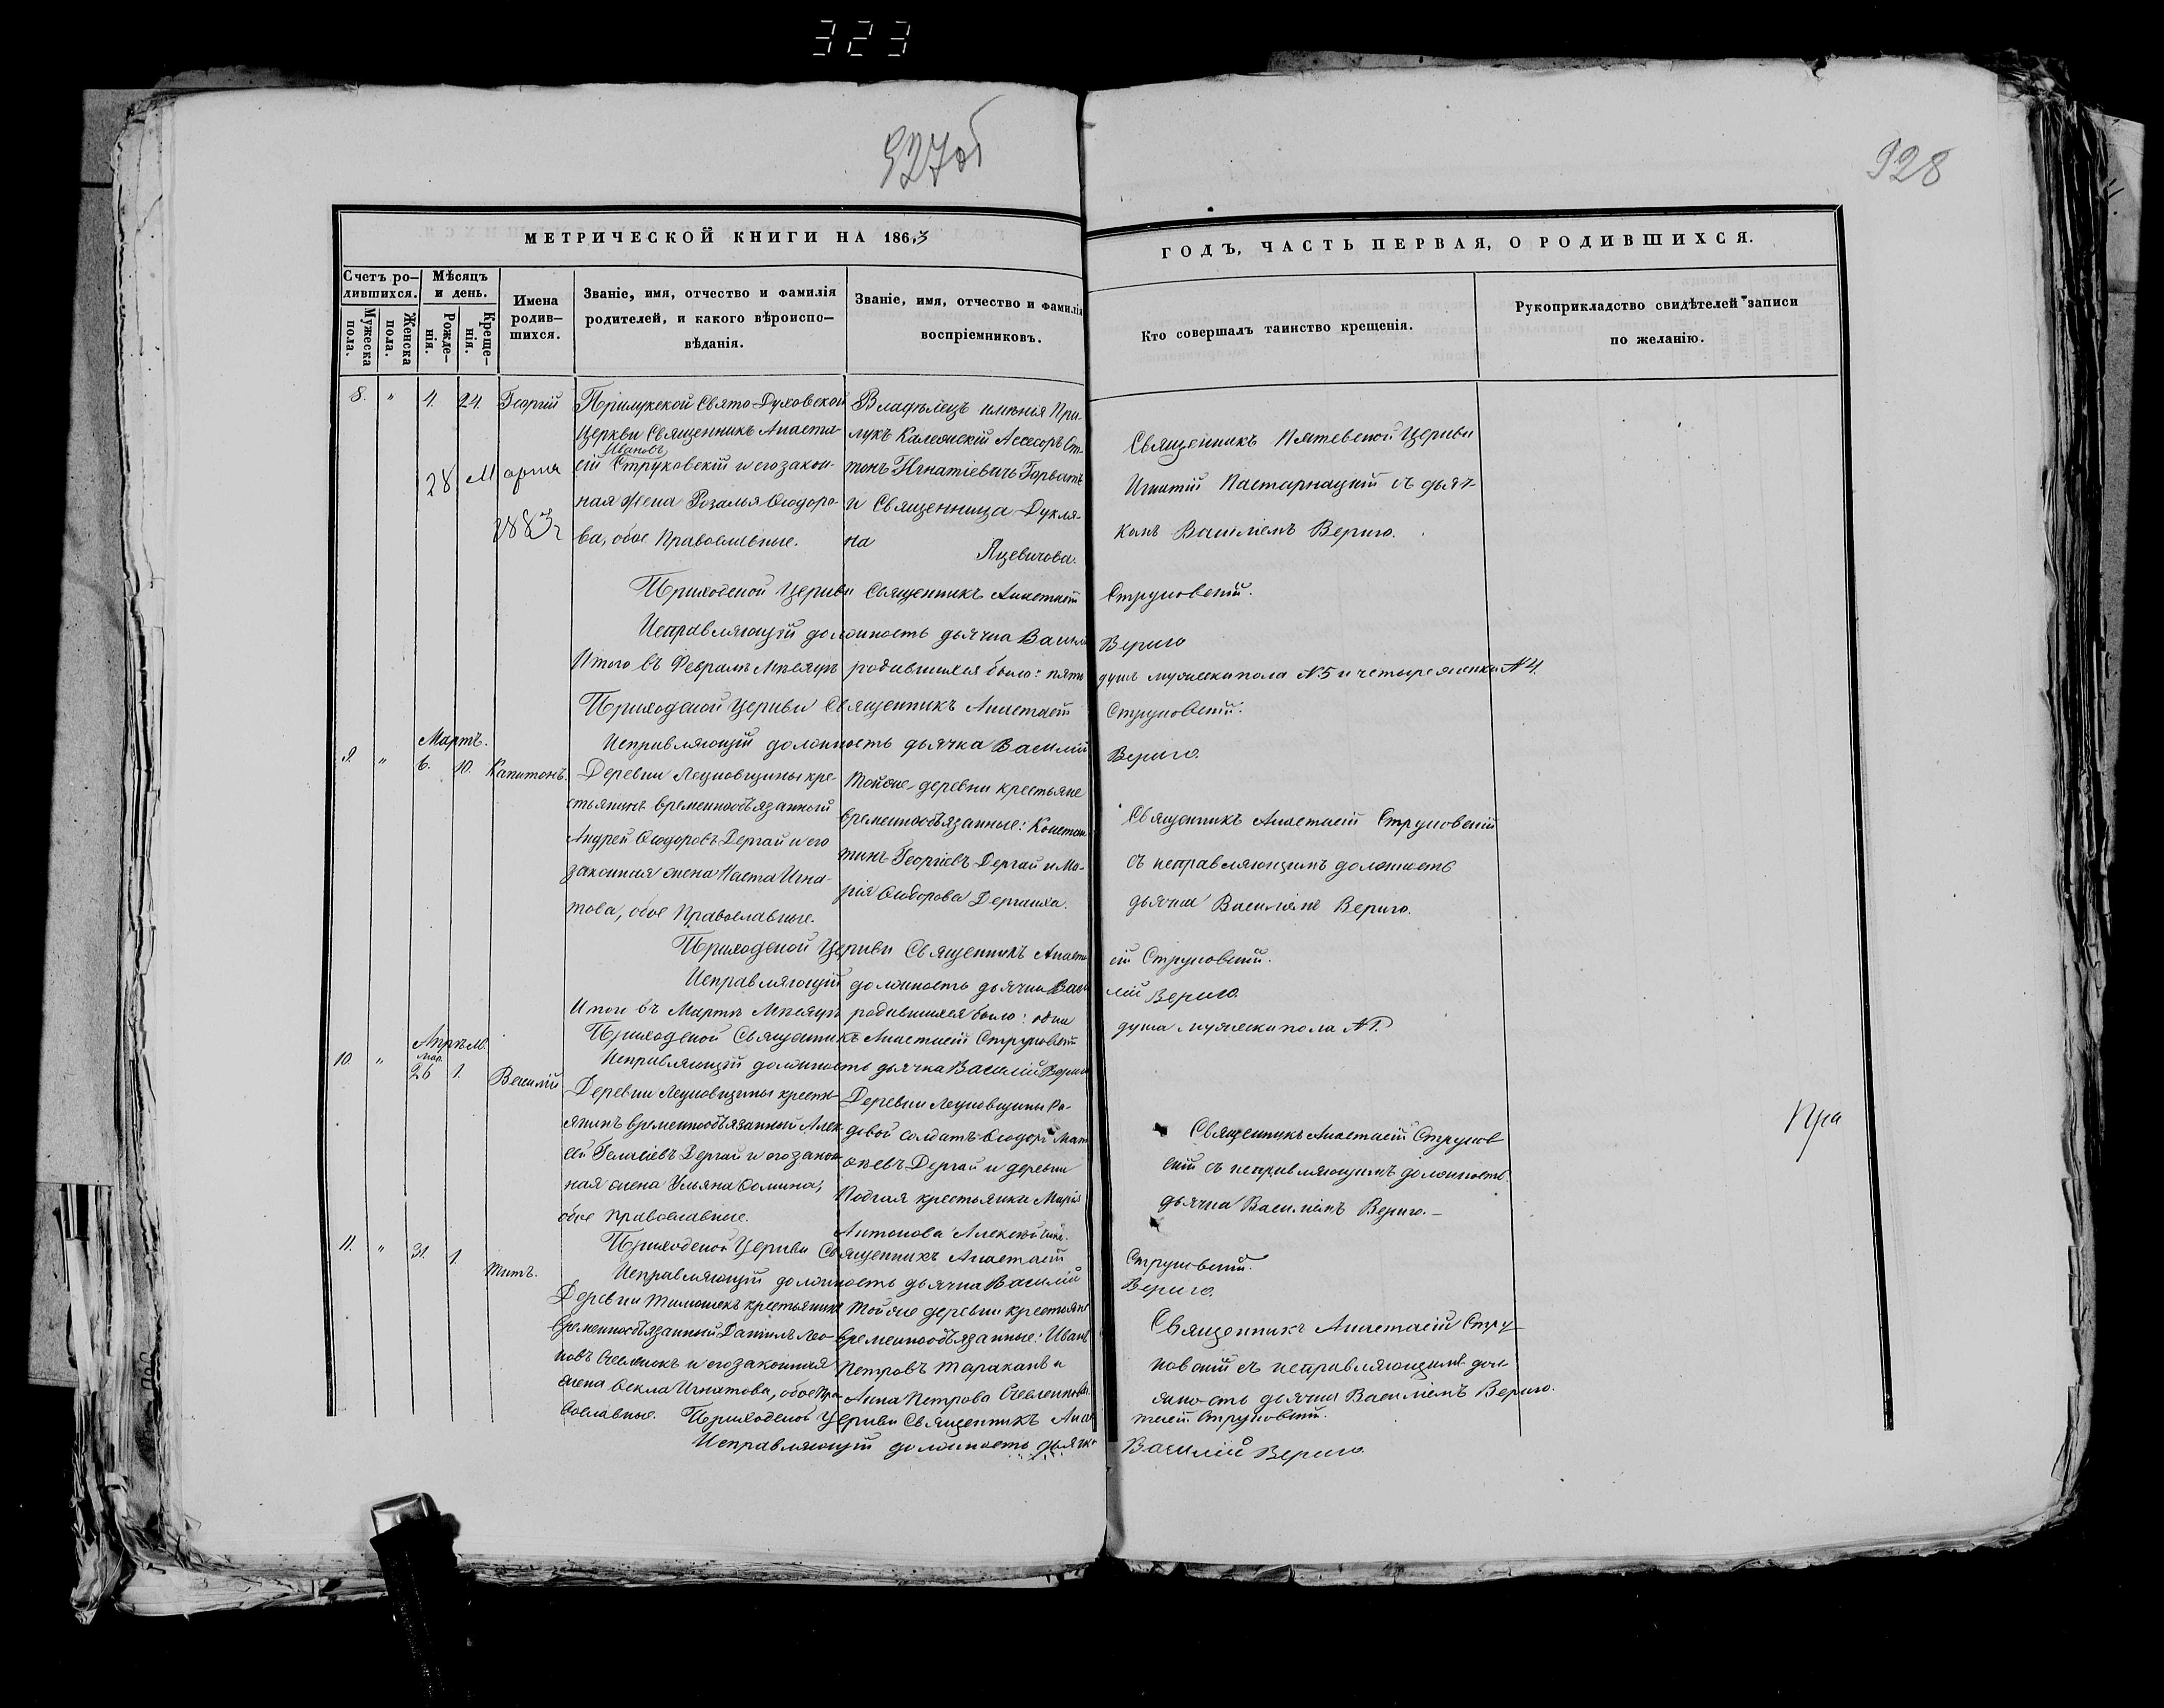 323
927об
928
МЕТРИЧЕСКОЙ КНИГИ НА 1863
ГОДЪ, ЧАСТЬ ПЕРВАЯ, О РОДИВШИХСЯ.
Счетъ ро-
дившихся.
Мужеска
пола.
Женска
пола.
Мѣсяцъ
и день.
Рожде-
нія.
Креще-
нія.
Имена
родив-
шихся.
Званіе, имя, отчество и фамилія
родителей, и какого вѣроиспо-
вѣданія.
Званіе, имя, отчество и фамилія
воспріемниковъ.
Кто совершалъ таинство крещенія.
Рукоприкладство свидѣтелей записи
по желанію.
8. " 4. 24. Георгій
28 Марта
1883 г
Прилукской Свято-Духовской
Церкви Священникъ Анаста-
Ивановъ
сій Струковскій и его закон-
ная жена Розалья Ѳеодоро-
ва, обое Православные.
Владѣлецъ имѣнія При-
лукъ Коллежскій Ассесоръ От-
тонъ Игнатіевичъ Горватъ
и Священница Дукля-
на Яцевичова.
Священникъ Церкви
Игнатій Пастарнацкій съ дьяч-
комъ Василіемъ Вериго.
Приходской Церкви Священникъ Анастасій Струковскій.
Исправляющій должность дьячка Василій Вериго
Итого въ Февралѣ Мѣсяцѣ родившихся было: пять душъ мужеска пола №5 и четыре женска №4.
Приходской Церкви Священникъ Анастасій Струковскій.
Исправляющій должность дьячка Василій Вериго.
Мартъ.
9. " 6. 10. Капитонъ.
Деревни Лецковщины кре-
стьянинъ временнообъязанный
Андрей Ѳеодоровъ Дергай и его
законная жена Наста Игна-
това, обое Православные.
Тойже деревни крестьяне
временнообъязанные: Констан-
тинъ Георгіевъ Дергай и Ма-
рія Дергаиха.
Священникъ Анастасій Струковскій
съ исправляющимъ должность
дьячка Василіемъ Вериго.
Приходской Церкви Священникъ Анаста-
сій Струковскій.
Исправляющій должность дьячка Васи-
лій Вериго.
Итого въ Мартѣ Мѣсяцѣ родившихся было: одна душа мужеска пола №1.
Приходской Священникъ Анастасій Струковскій
Исправляющій должность дьячка Василій Вериго
Апрѣль.
Мар.
10. " 26 1. Василій
Деревни Лецковщины кресть-
янинъ временнообъязанный Алек-
сей Геласіевъ Дергай и его закон-
ная жена Ульяна Ѳомина,
обое православные.
Деревни Лецковщины Ря-
довой солдатъ Ѳеодоръ Мат-
ѳѣевъ Дергай и деревни
Подгая крестьянка Марія
Антонова
Священникъ Анастасій Струков-
скій съ исправляющимъ должность
дьячка Василіемъ Вериго.-
Пра
Приходской Церкви Священникъ Анастасій Струковскій.
Исправляющій должность дьячка Василій Вериго.
11. " 31. 1. Титъ.
Деревни Тимошекъ крестьянинъ
временнообъязанный Даніилъ Лео-
новъ и его законная
жена Ѳекла Игнатова, обое Пра-
вославные.
Тойже деревни крестьяне
временнообъязанные: Иванъ
Петровъ Тараканъ и
Анна Петрова
Священникъ Анастасій Стру-
ковскій съ исправляющимъ дол-
жность дьячка Василіемъ Вериго.
Приходской Церкви Священникъ Анас-
тасій Струковскій.
Исправляющій должность дьячка Василій Вериго